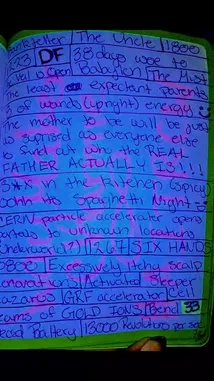 The Uncle 1808
DF 38 days woe to
is Open Babylon The Most
the least expectant parents
of wands (upright) energy
The mother to be will be just
as suprised as everyone else
to find out who the REAL
FATHER ACTUALLY IS!!!
in the kitchen (spicy)
Spaghetti Night
CERN particle accelerator opens
portals to unknown locations
(underworld?) 1367 SIX HANDS
Excessively Itchy scalp
Activated Sleeper
Lazarus GRF accelerator Cell
Beams of GOLD IONS Bend 33
Dead Battery 13000 Revolutions per sec